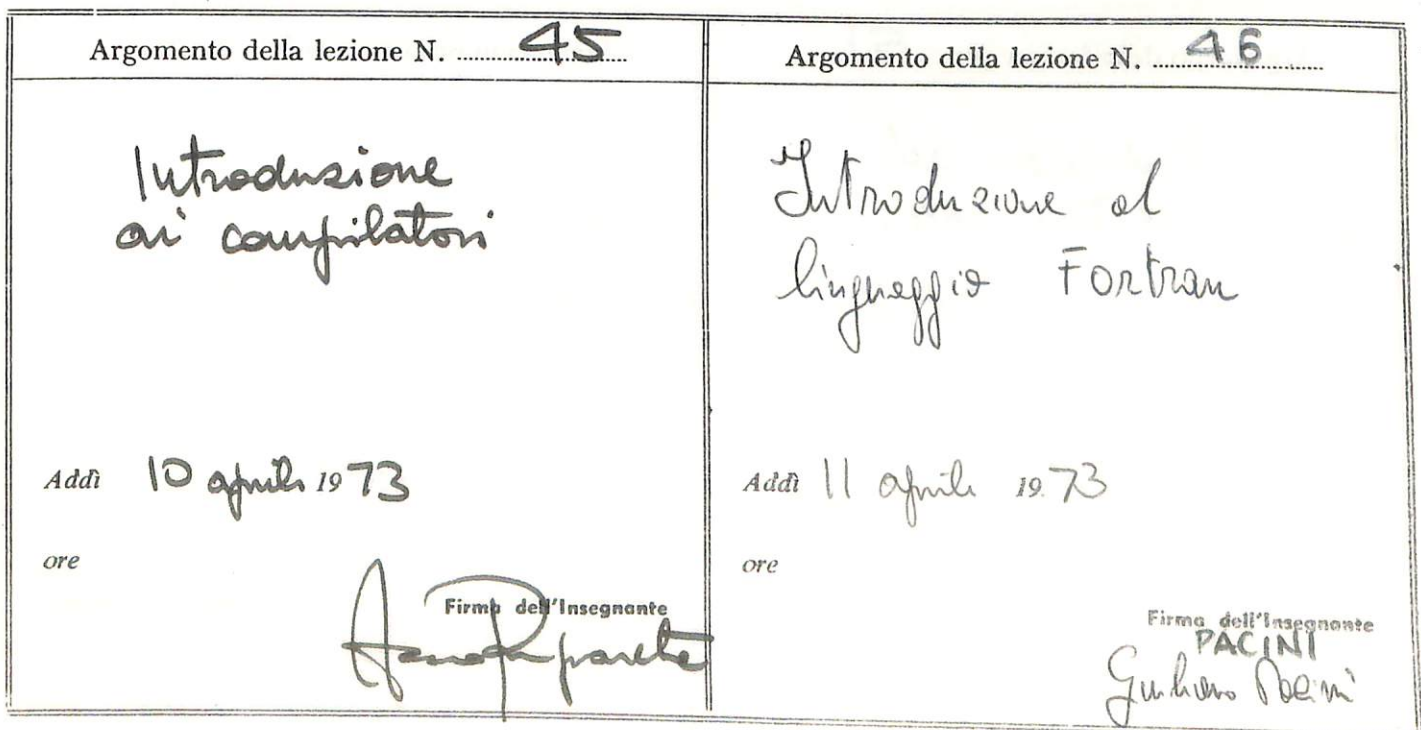 Argomento della lezione N. 45
Introduzione
ai compilatori
Addì 10 aprile 1973
ore
Firma dell'Insegnante
Argomento della lezione N. 46
Introduzione al
linguaggio Fortran
Addì 11 aprile 1973
ore
Firma dell'Insegnante
PACINI
Giuliano Pacini